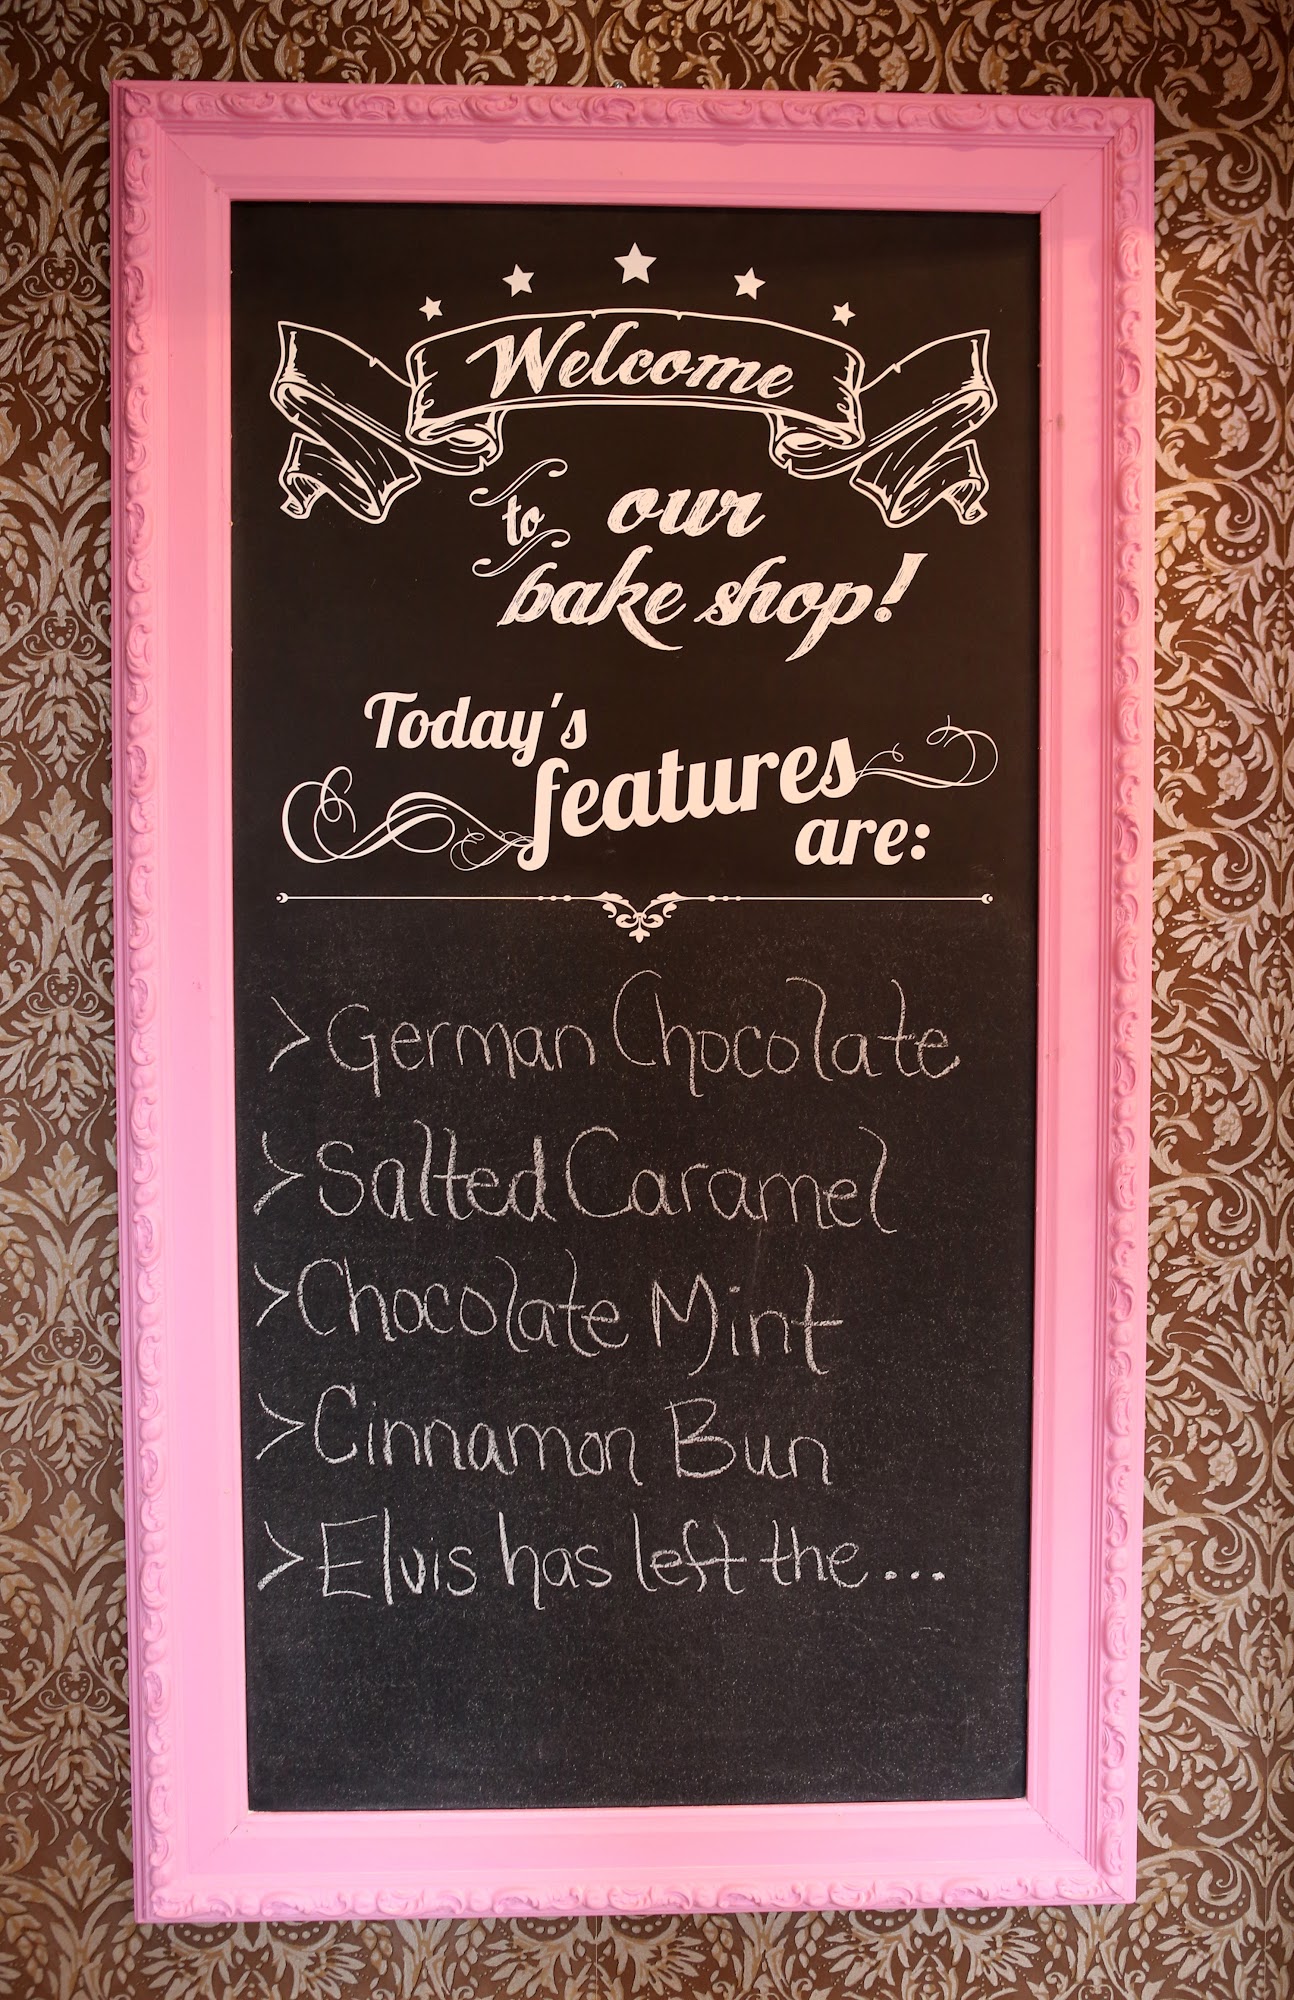 Welcome
to our
bake shop!
Today's
features
are:
> German Chocolate
> Salted Caramel
> Chocolate Mint
> Cinnamon Bun
> Elvis has left the...